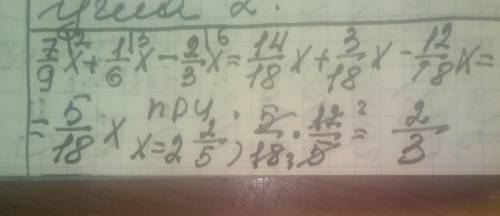 7/9^{\2}x + 1/6^{\3}x - 2/3^{\6}x = 14/18 x + 3/18 x - 12/18 x =
= 5/18 x при x = 2 2/5; 5/18₃ · 12/5 ² = 2/3